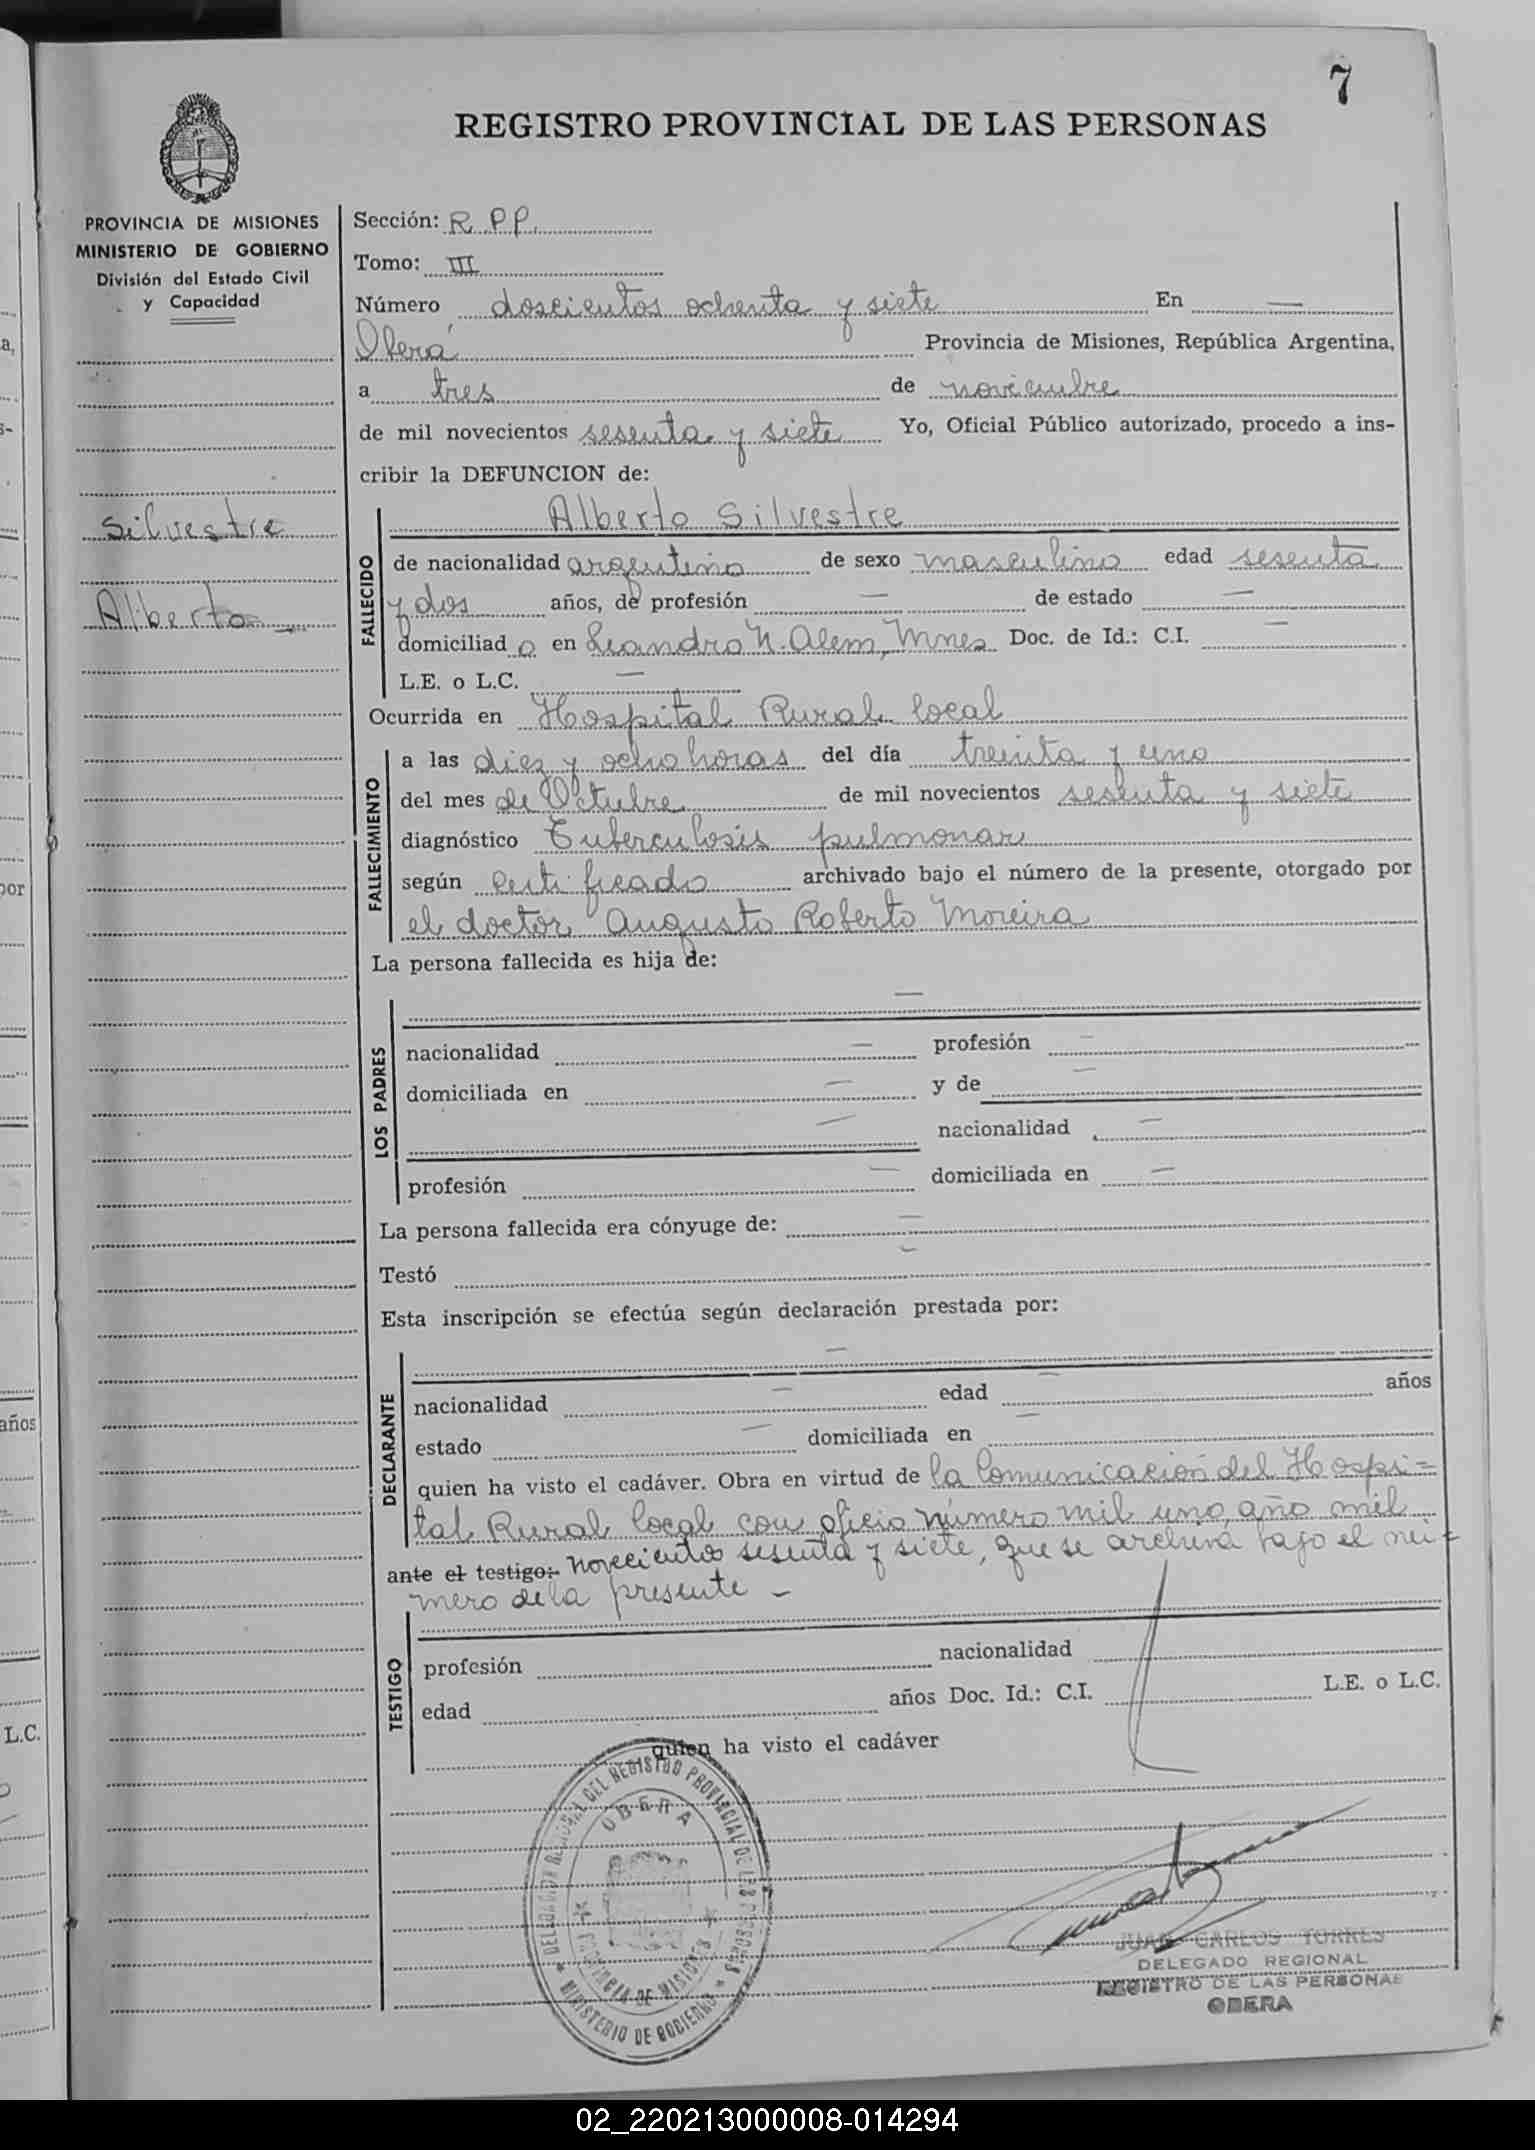 7
REGISTRO PROVINCIAL DE LAS PERSONAS
PROVINCIA DE MISIONES
MINISTERIO DE GOBIERNO
División del Estado Civil
y Capacidad
Silvestre
Alberto _
Sección: R.P.P.
Tomo: III
Número doscientos ochenta y siete En —
Oberá Provincia de Misiones, República Argentina,
a tres de noviembre
de mil novecientos sesenta y siete Yo, Oficial Público autorizado, procedo a ins-
cribir la DEFUNCION de:
FALLECIDO
Alberto Silvestre
de nacionalidad argentino de sexo masculino edad sesenta
y dos años, de profesión — de estado —
domiciliad o en Leandro N. Alem, Mnes Doc. de Id.: C.I. —
L.E. o L.C. —
Ocurrida en Hospital Rural local
FALLECIMIENTO
a las diez y ocho horas del día treinta y uno
del mes de Octubre de mil novecientos sesenta y siete
diagnóstico Tuberculosis pulmonar
según certificado archivado bajo el número de la presente, otorgado por
el doctor Augusto Roberto Moreira
La persona fallecida es hija de:
LOS PADRES
—
nacionalidad — profesión —
domiciliada en — y de —
— nacionalidad —
profesión — domiciliada en —
La persona fallecida era cónyuge de: —
Testó —
Esta inscripción se efectúa según declaración prestada por:
DECLARANTE
—
nacionalidad — edad — años
estado — domiciliada en —
quien ha visto el cadáver. Obra en virtud de la Comunicación del Hospi=
tal Rural local con oficio número mil uno, año mil
ante el testigo: novecientos sesenta y siete, que se archiva bajo el nú=
mero de la presente —
TESTIGO
profesión nacionalidad
edad años Doc. Id.: C.I. L.E. o L.C.
quien ha visto el cadáver
DELEGACION REGIONAL DEL REGISTRO PROVINCIAL DE LAS PERSONAS
OBERA
PROVINCIA DE MISIONES
MINISTERIO DE GOBIERNO
JUAN CARLOS TORRES
DELEGADO REGIONAL
REGISTRO DE LAS PERSONAS
OBERA
a,
s-
por
años
L.C.
02_220213000008-014294